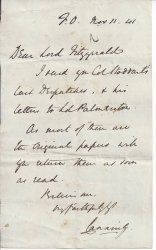 F.O. Nov 11. 41
Dear Lord Fitzgerald
I send you Col Stoddart's
last Despatches, & his
letters to Ld Palmerston
As most of them are
the original papers will
you return them as soon
as read.
Believe me
my faithfully
Canning